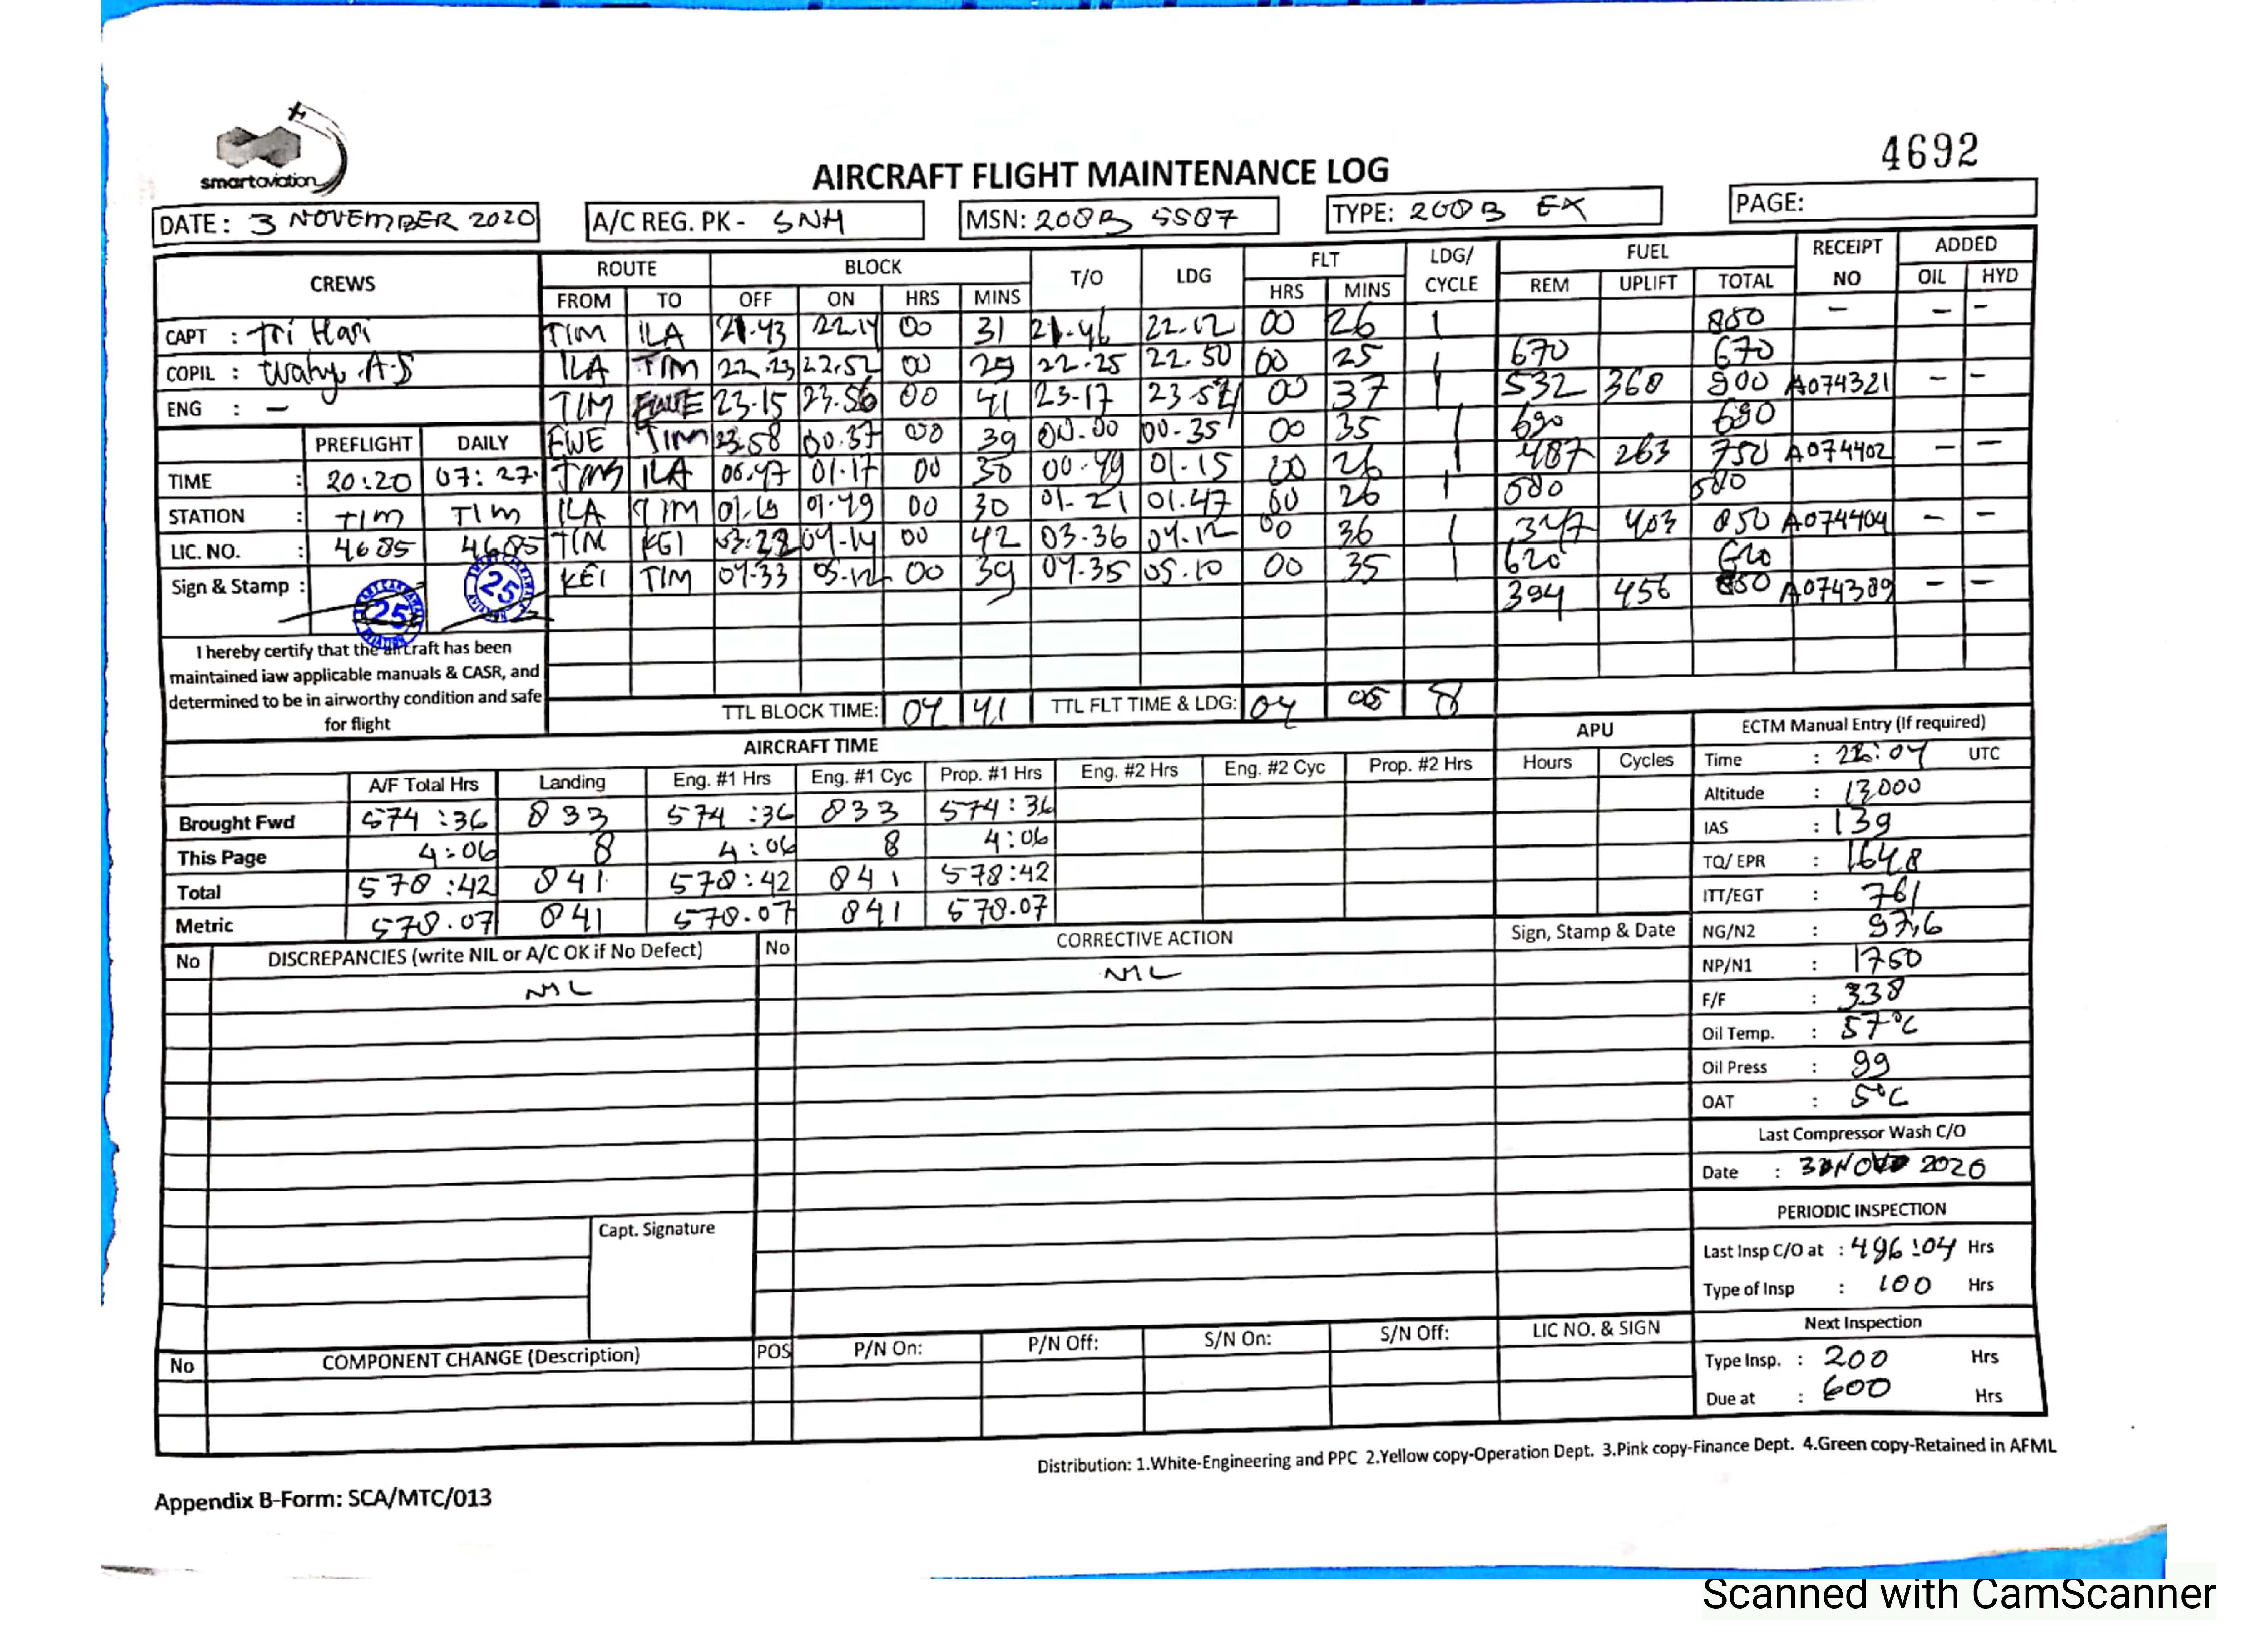 smartaviation
4692
AIRCRAFT FLIGHT MAINTENANCE LOG
DATE: 3 NOVEMBER 2020 A/C REG. PK - SNH MSN: 208B 5587 TYPE: 208B EX PAGE:
CREWS ROUTE BLOCK T/O LDG FLT LDG/ CYCLE FUEL RECEIPT NO ADDED
FROM TO OFF ON HRS MINS HRS MINS REM UPLIFT TOTAL OIL HYD
CAPT : Tri Hari TIM ILA 21.43 22.14 00 31 21.46 22.12 00 26 1 850 - - -
COPIL : Wahyu A.S ILA TIM 22.23 22.52 00 29 22.25 22.50 00 25 1 670 670
ENG : - TIM EWE 23.15 23.56 00 41 23.17 23.54 00 37 1 532 368 900 A074321 - -
PREFLIGHT DAILY EWE TIM 23.58 00.37 00 39 00.00 00.35 00 35 1 690 690
TIME : 20:20 07:27 TIM ILA 00.47 01.17 00 30 00.49 01.15 00 26 1 487 263 750 A074402 - -
STATION : TIM TIM ILA TIM 01.19 01.49 00 30 01.21 01.47 00 26 1 580 580
LIC. NO. : 4685 4685 TIM KEI 04.14 00 42 03.36 04.12 00 36 1 347 403 850 A074404 - -
Sign & Stamp : 25 25 KEI TIM 04.33 05.12 00 39 04.35 05.10 00 35 1 620 620
394 456 850 A074389 - -
I hereby certify that the aircraft has been
maintained iaw applicable manuals & CASR, and
determined to be in airworthy condition and safe
for flight
TTL BLOCK TIME: 04 41 TTL FLT TIME & LDG: 04 06 8
AIRCRAFT TIME APU ECTM Manual Entry (If required)
A/F Total Hrs Landing Eng. #1 Hrs Eng. #1 Cyc Prop. #1 Hrs Eng. #2 Hrs Eng. #2 Cyc Prop. #2 Hrs Hours Cycles
Time : 22:04 UTC
Brought Fwd 574:36 833 574:36 833 574:36
Altitude : 13000
This Page 4:06 8 4:06 8 4:06
IAS : 139
Total 578:42 841 578:42 841 578:42
TQ/ EPR : 1648
Metric 578.07 841 578.07 841 578.07
ITT/EGT : 761
No DISCREPANCIES (write NIL or A/C OK if No Defect) No CORRECTIVE ACTION Sign, Stamp & Date
NG/N2 : 97,6
NIL NIL
NP/N1 : 1750
F/F : 338
Oil Temp. : 57°C
Oil Press : 99
OAT : 5°C
Last Compressor Wash C/O
Date : 3 NOV 2020
PERIODIC INSPECTION
Capt. Signature
Last Insp C/O at : 496:04 Hrs
Type of Insp : 100 Hrs
Next Inspection
No COMPONENT CHANGE (Description) POS P/N On: P/N Off: S/N On: S/N Off: LIC NO. & SIGN
Type Insp. : 200 Hrs
Due at : 600 Hrs
Distribution: 1.White-Engineering and PPC 2.Yellow copy-Operation Dept. 3.Pink copy-Finance Dept. 4.Green copy-Retained in AFML
Appendix B-Form: SCA/MTC/013
Scanned with CamScanner